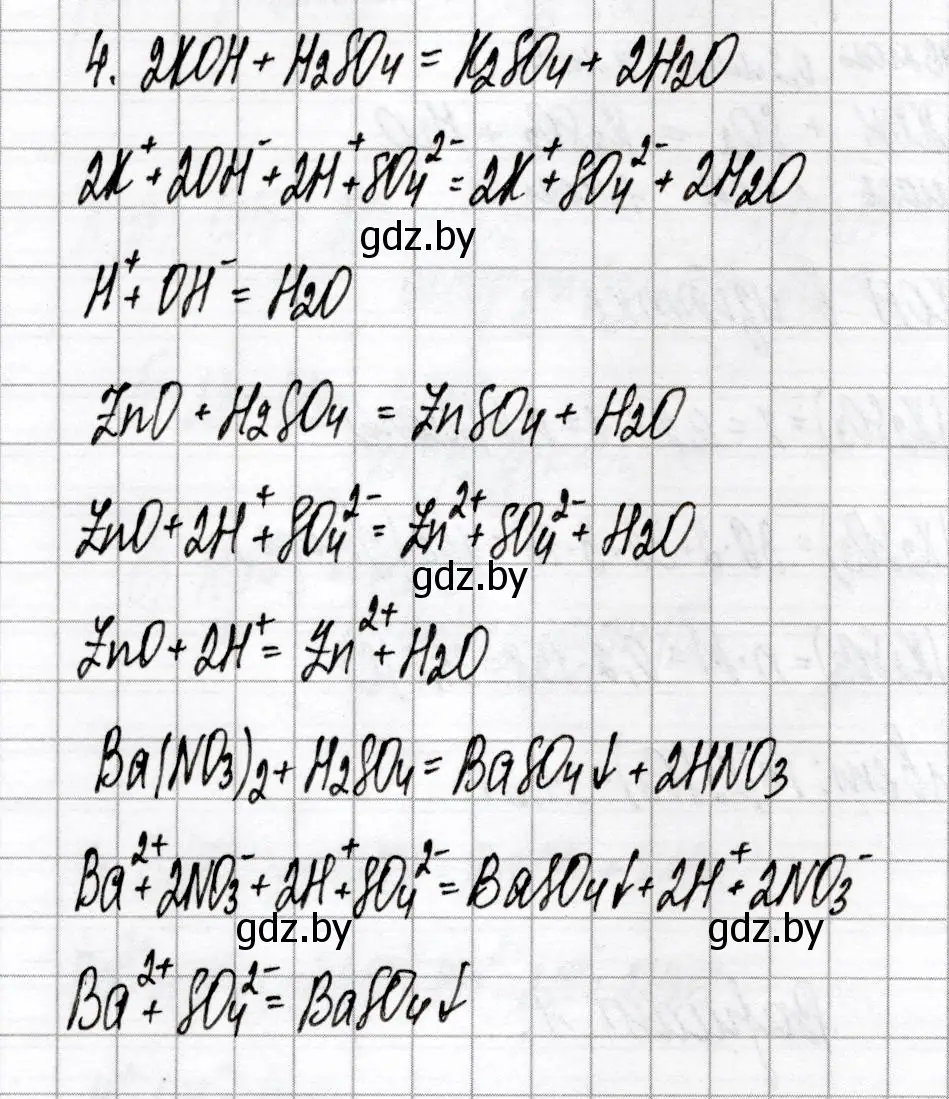 4. 2KOH + H2SO4 = K2SO4 + 2H2O
2K⁺ + 2OH⁻ + 2H⁺ + SO4²⁻ = 2K⁺ + SO4²⁻ + 2H2O
gdz.by
H⁺ + OH⁻ = H2O
ZnO + H2SO4 = ZnSO4 + H2O
ZnO + 2H⁺ + SO4²⁻ = Zn²⁺ + SO4²⁻ + H2O
gdz.by
ZnO + 2H⁺ = Zn²⁺ + H2O
Ba(NO3)2 + H2SO4 = BaSO4↓ + 2HNO3
Ba²⁺ + 2NO3⁻ + 2H⁺ + SO4²⁻ = BaSO4↓ + 2H⁺ + 2NO3⁻
gdz.by gdz.by
Ba²⁺ + SO4²⁻ = BaSO4↓